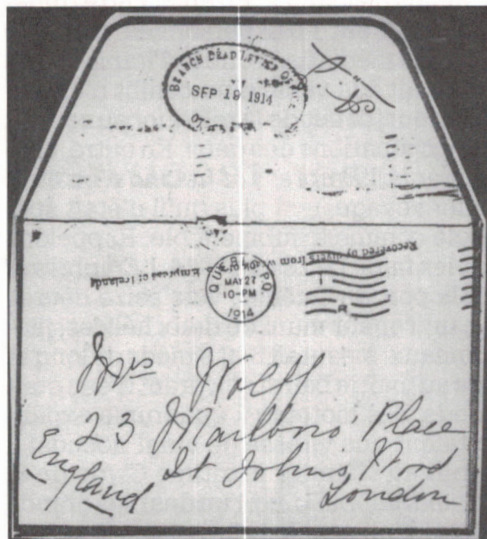 BRANCH DEAD LETTER OFFICE
SEP 19 1914
Recovered by divers from wreck of S.S. Empress of Ireland
QUEBEC, P.Q.
MAY 27
10-PM
1914
Mrs Wolff
23 Marlboro' Place
St Johns Wood
London
England